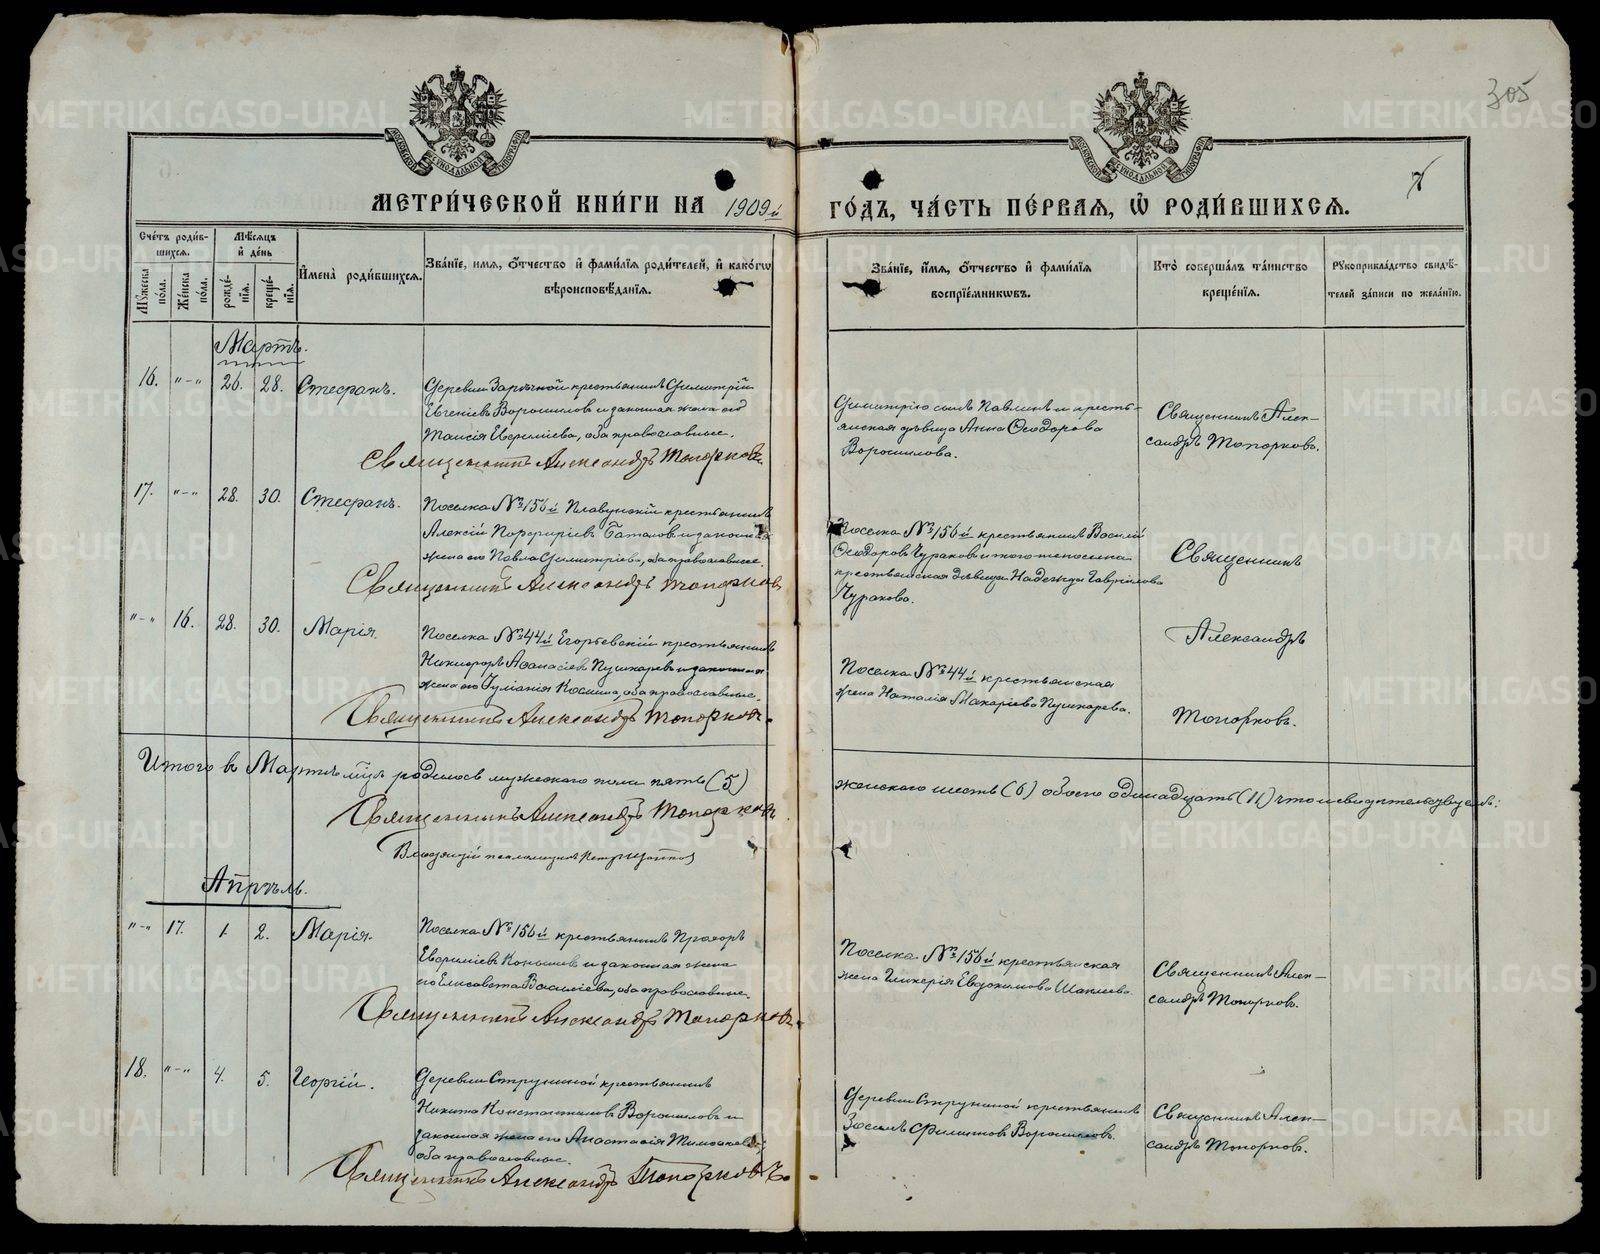 305
7
МЕТРИ́ЧЕСКОЙ КНИ́ГИ НА 1909й ГО́ДЪ, ЧА́СТЬ ПЕ́РВАЯ, Ѽ РОДИ́ВШИХСЯ.
Сче́тъ роди́вшихся.
Мѣ́сяцъ и де́нь
Му́жеска по́ла.
Же́нска по́ла.
рожде́нїя.
креще́нїя.
И҆мена̀ роди́вшихся.
Зва́нїе, и҆мя, ѻ҆́тчество и҆ фами́лїя роди́телей, и҆ како́гѡ
вѣроисповѣ́данїя.
Зва́нїе, и҆́мя, ѻ҆́тчество и҆ фами́лїя
воспрїе́мникѡвъ.
Кто̀ соверша́лъ та́инство
креще́нїя.
Рꙋкоприкла́дство свидѣ́-
телей за́писи по жела́нїю.
Мартъ.
16. "-" 26. 28. Стефанъ.
Деревни Зарѣчной крестьянинъ Димитрій
Евгеніевъ Ворошиловъ и законная жена его
Таисія Евфиміева, оба православные.
Священникъ Александръ Топорковъ.
Димитрію сынъ Павлинъ и кресть-
янская дѣвица Анна Ѳеодорова
Ворошилова.
Священникъ Алек-
сандръ Топорковъ.
17. "-" 28. 30. Стефанъ.
Поселка №156й крестьянинъ
Алексій Порфиріевъ Баталовъ и законная
жена его Павла Димитріева, оба православные.
Священникъ Александръ Топорковъ
Поселка №156й крестьянинъ Василій
Ѳеодоровъ Чураковъ и того же поселка
крестьянская дѣвица Надежда Гавриилова
Чуракова.
Священникъ
"-" 16. 28. 30. Марія.
Поселка №44й Егорьевскій крестьянинъ
Никифоръ Аѳанасіевъ Пушкаревъ и законная
жена его Іуліанія Космина, оба православные.
Священникъ Александръ Топорковъ.
Поселка №44й крестьянская
жена Наталія Макаріева Пушкарева.
Александръ
Топорковъ.
Итого въ Мартѣ мцѣ родилось мужескаго пола пять (5)
женскаго шесть (6) обоего одинадцать (11) что и свидѣтельствуемъ:
Священникъ Александръ Топорковъ
псаломщикъ Петръ
Апрѣль.
"-" 17. 1. 2. Марія.
Поселка №156й крестьянинъ Прохоръ
Евфиміевъ Коньшинъ и законная жена
его Елисавета Василіева, оба православные.
Священникъ Александръ Топорковъ.
Поселка №156й крестьянская
жена Гликерія Евдокимова Шаклеева.
Священникъ Алек-
сандръ Топорковъ.
18. "-" 4. 5. Георгій.
Деревни Струниной крестьянинъ
Никита Константиновъ Ворошиловъ и
законная жена его Анастасія Тимоѳеева,
оба православные.
Священникъ Александръ Топорковъ.
Деревни Струниной крестьянинъ
Зосимъ Филиповъ Ворошиловъ.
Священникъ Алек-
сандръ Топорковъ.
METRIKI.GASO-URAL.RU